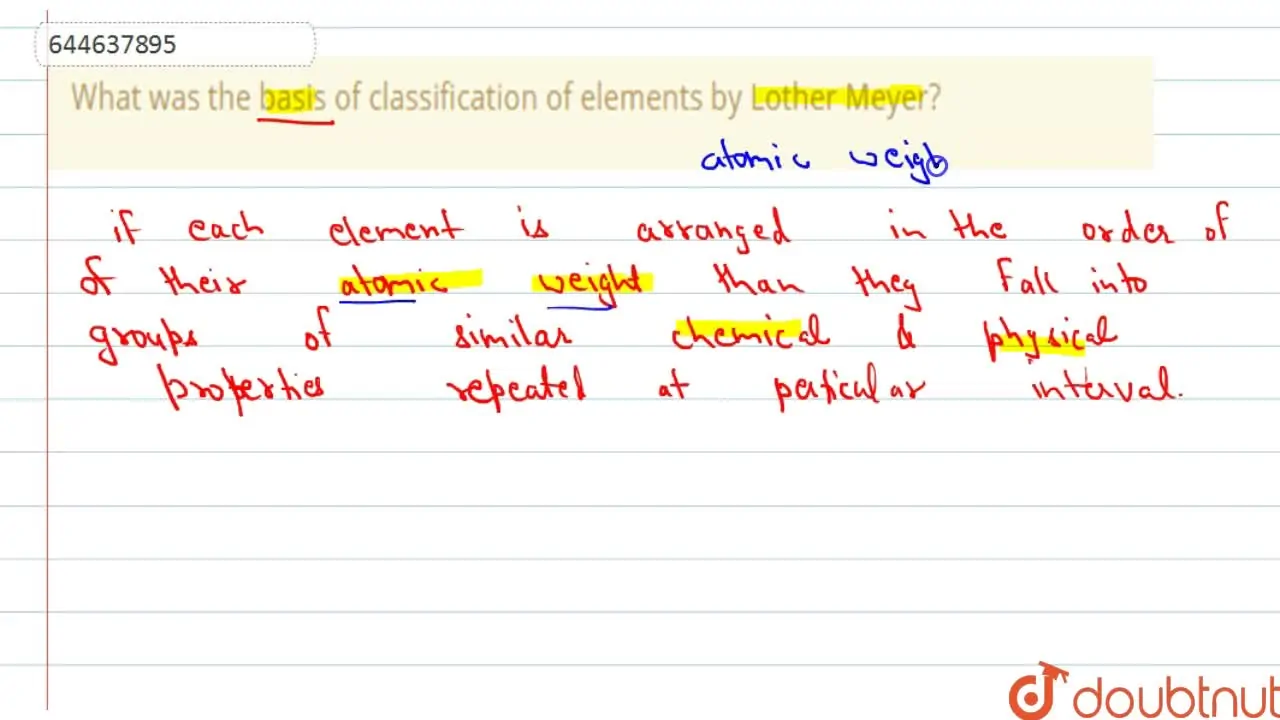 644637895
What was the basis of classification of elements by Lother Meyer?
atomic weigh
if each element is arranged in the order of
of their atomic weight than they fall into
groups of similar chemical & physical
properties repeated at perticular interval.
doubtnut